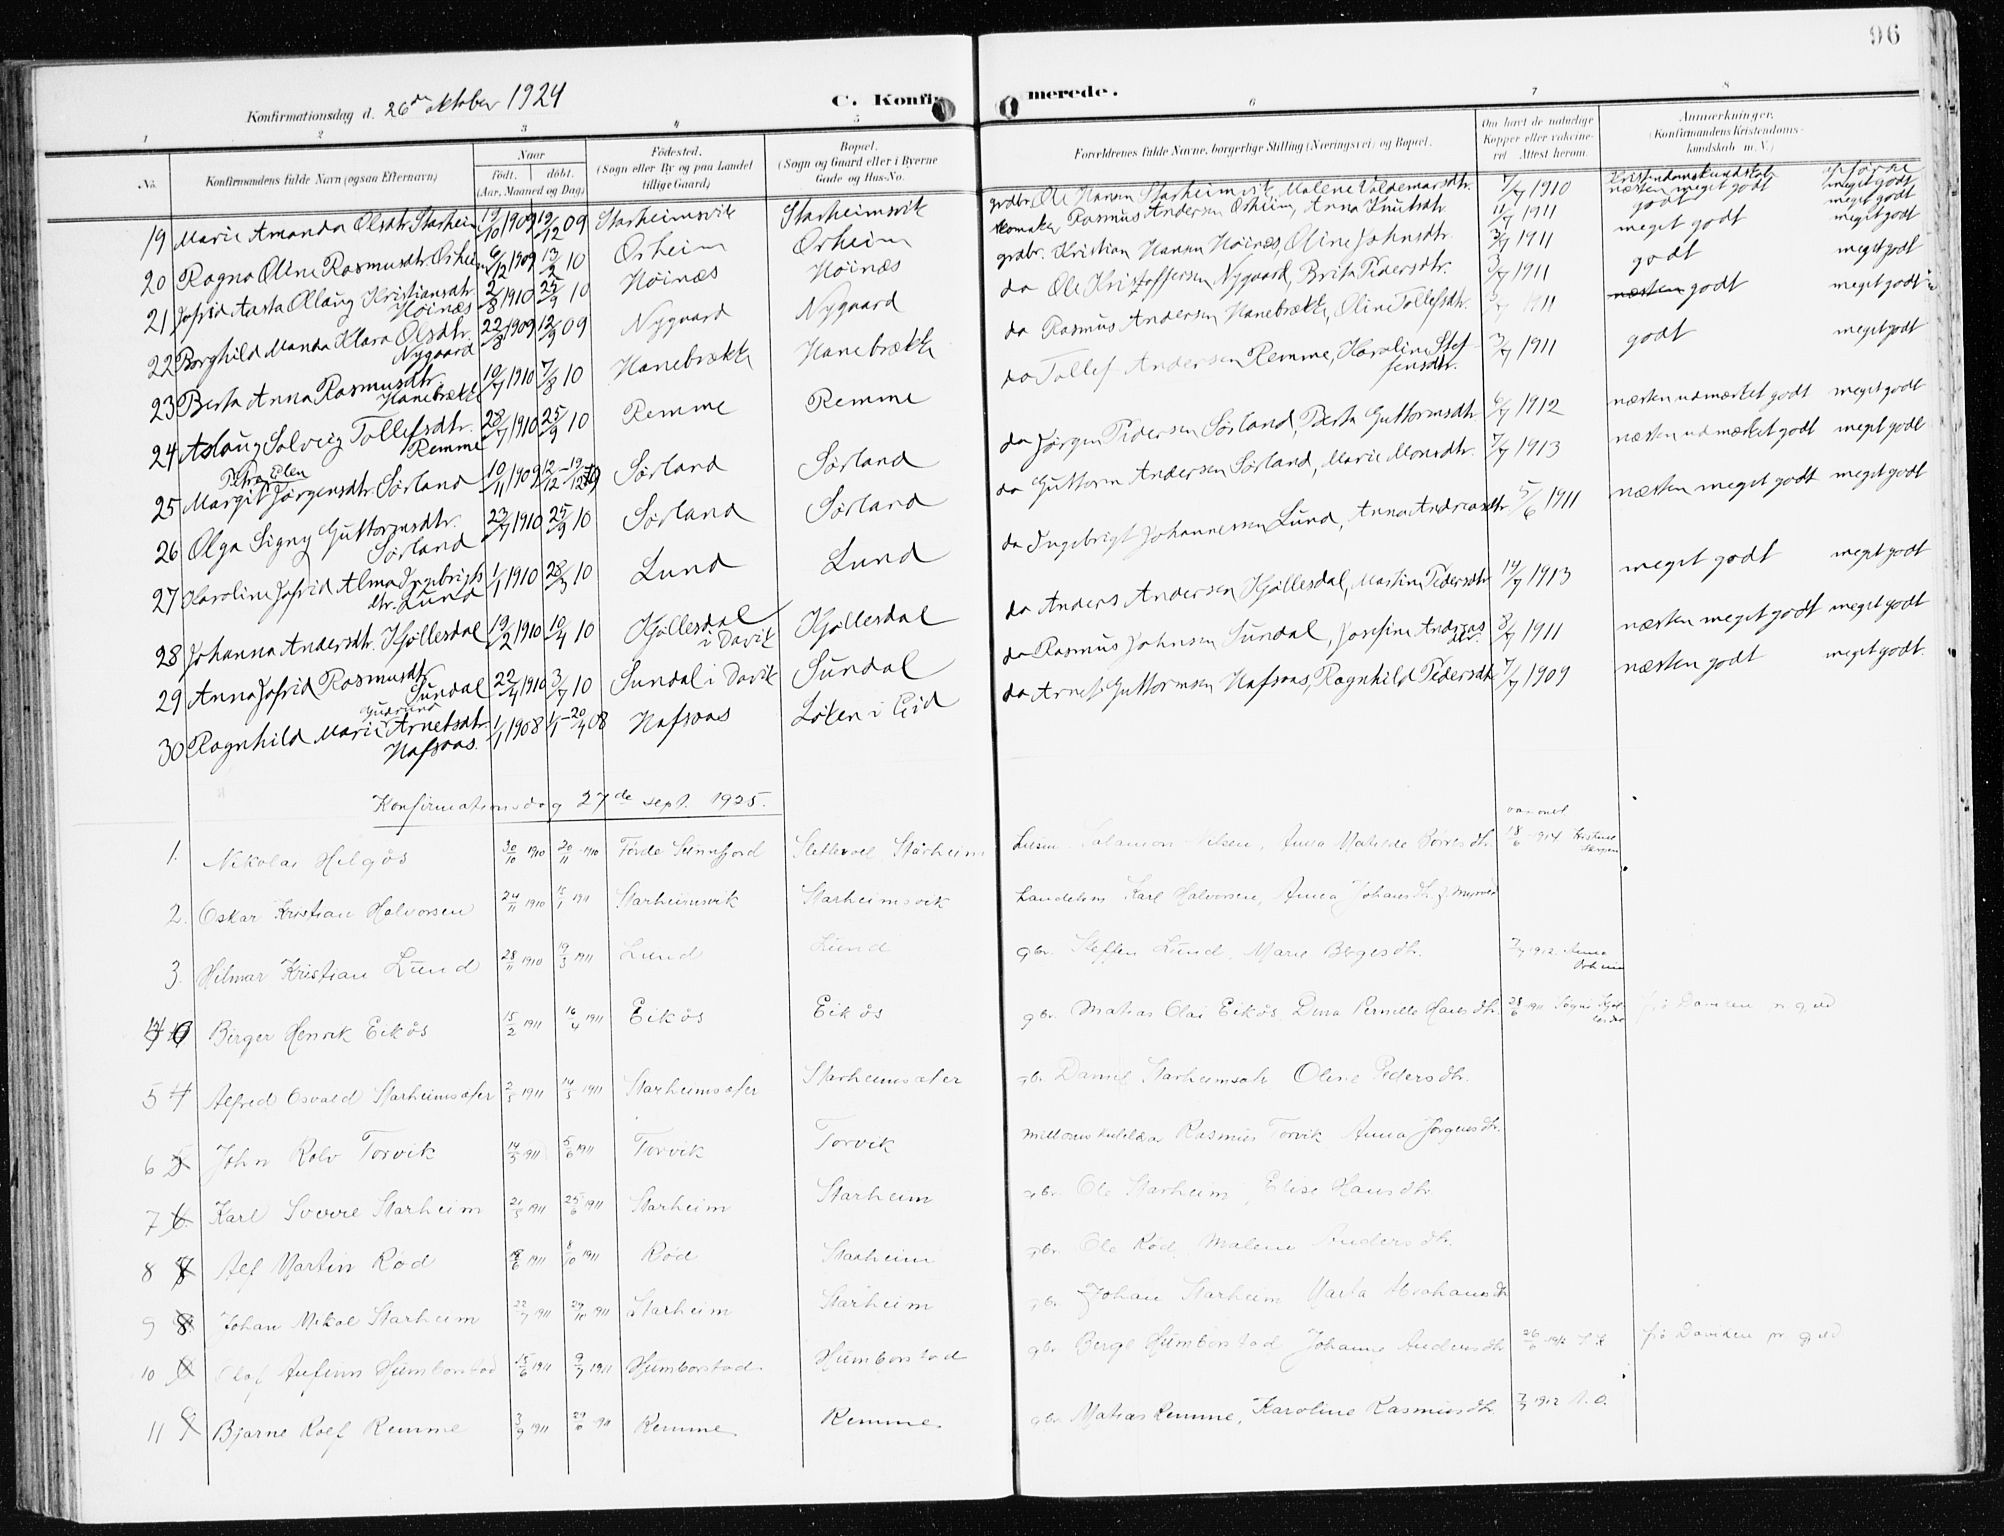 96
Konfirmationsdag d. 26de oktober 1924
C. Konfirmerede.
1 2 3 4 5 6 7 8
No. Konfirmandens fulde Navn (ogsaa Efternavn) Naar født. døbt. (Aar, Maaned og Dag) Fødested. (Sogn eller By og paa Landet tillige Gaard) Bopæl. (Sogn og Gaard eller i Byerne Gade og Hus-No. Forældrenes fulde Navne, borgerlige Stilling (Næringsvei) og Bopæl. Om havt de naturlige Kopper eller vaccineret. Attest herom. Anmærkninger. (Konfirmandens Kristendomskundskab m. V.)
Kristendomskundskab opførsel
19 Marie Amanda Olsdtr. Starheim 19/10 1909 19/12 09 Starheimsvik Starheimsvik grdbr. Ole Hansen Starheimsvik, Malene Valdemarsdtr. 7/7 1910 næsten meget godt meget godt
20 Ragna Oline Rasmusdtr. Orheim 6/12 1909 13/2 10 Orheim Orheim skomaker Rasmus Andersen Orheim, Anna Knutsdtr. 11/7 1911 godt meget godt
21 Jofrid Aasta Ollaug Kristiansdtr. Høinæs 2/8 1910 25/9 10 Høinæs Høinæs grdbr. Kristian Hansen Høinæs, Oline Johnsdtr. 3/7 1911 meget godt meget godt
22 Borghild Manda Klara Olsdtr. Nygaard 22/8 1909 12/9 09 Nygaard Nygaard do Ole Kristoffersen Nygaard, Brita Pedersdtr. 3/7 1911 godt meget godt
23 Berta Anna Rasmusdtr. Hanebrække 10/7 1910 7/8 10 Hanebrække Hanebrække do Rasmus Andersen Hanebrække, Oline Tollefsdtr. 3/7 1911 næsten godt meget godt
24 Aslaug Solveig Tollefsdtr. Remme 28/7 1910 25/9 10 Remme Remme do Tollef Andersen Remme, Karoline Steffensdtr. 3/7 1911 godt meget godt
25 Margit Petra Elen Jørgensdtr. Sørland 10/11 1909 12/12 - 19/12 09 Sørland Sørland do Jørgen Pedersen Sørland, Berta Guttormsdtr. 6/7 1912 næsten udmærket godt meget godt
26 Olga Signy Guttormsdtr. Sørland 23/7 1910 25/9 10 Sørland Sørland do Guttorm Andersen Sørland, Marie Monsdtr. 7/7 1913 næsten udmærket godt meget godt
27 Karoline Jofrid Alma Ingebrigtsdtr. Lund 1/1 1910 28/3 10 Lund Lund do Ingebrigt Johannessen Lund, Anna Andreasdtr. 5/6 1911 næsten meget godt meget godt
28 Johanna Andersdtr. Hjøllesdal 19/2 1910 10/4 10 Hjøllesdal i Davik Hjøllesdal do Anders Andersen Hjøllesdal, Martine Pedersdtr. 14/7 1913 meget godt meget godt
29 Anna Jofrid Rasmusdtr. Sundal 22/4 1910 3/7 10 Sundal i Davik Sundal do Rasmus Johnsen Sundal, Josefine Andreasdtr. 8/7 1911 næsten meget godt meget godt
30 Ragnhild Marie Gudrund Arnetsdtr. Hafsaas. 1/1 1908 1/1 - 20/4 08 Hafsaas Løken i Eid do Arnet Guttormsen Hafsaas, Ragnhild Pedersdtr. 7/7 1909 næsten godt meget godt.
Konfirmationsdag 27de sept. 1925.
1. Nikolai Helgås 30/10 1910 20/11 1910 Førde Sunnfjord Slettevoll Starheim Salamon Nilsen, Anna Matilde Børresdtr. 18/6 1914
2. Oskar Kristian Halvorsen 24/11 1910 15/1 1911 Starheimsvik Starheimsvik Landelsm. Karl Halvorsen, Anna Johansdtr. f. Myrvold
3. Hilmar Kristian Lund 28/11 1910 19/3 1911 Lund Lund gbr. Steffen Lund, Marie Bergesdtr. 7/7 1912 Anna Orheim
4 Birger Henrik Eikås 15/2 1911 16/4 1911 Eikås Eikås gbr. Matias Olai Eikås, Dina Pernille Hansdtr. 28/6 1911 frå Daviken pr. gjeld
5 4 Alfred Osvald Starheimsæter 2/5 1911 14/5 1911 Starheimsæter Starheimsæter gbr. Daniel Starheimsætr Oline Pedersdtr.
6 5 John Rolv Torvik 14/5 1911 5/6 1911 Torvik Torvik Rasmus Torvik Anna Jørgensdtr.
7 6. Karl Sverre Starheim 21/5 1911 25/6 1911 Starheim Starheim gbr. Ole Starheim, Elise Hansdtr.
8 7 Alf Martin Rød 18/6 1911 8/10 1911 Rød Starheim gbr. Ole Rød, Malene Andersdtr.
9 8. Johan Mikal Starheim 22/7 1911 29/10 1911 Starheim Starheim gbr. Johan Starheim Marta Abrahamsdtr
10 Olaf Anfinn Hjumborstad 15/6 1911 9/7 1911 Hjumborstad Hjumborstad gbr. Berge Hjumborstad Johanne Andersdtr 26/6 1912 frå Daviken pr. gjeld
11 9 Bjarne Rolf Remme 3/9 1911 29/6 1911 Remme Remme gbr. Matias Remme, Karoline Rasmusdtr. 7/7 1912 A. O.